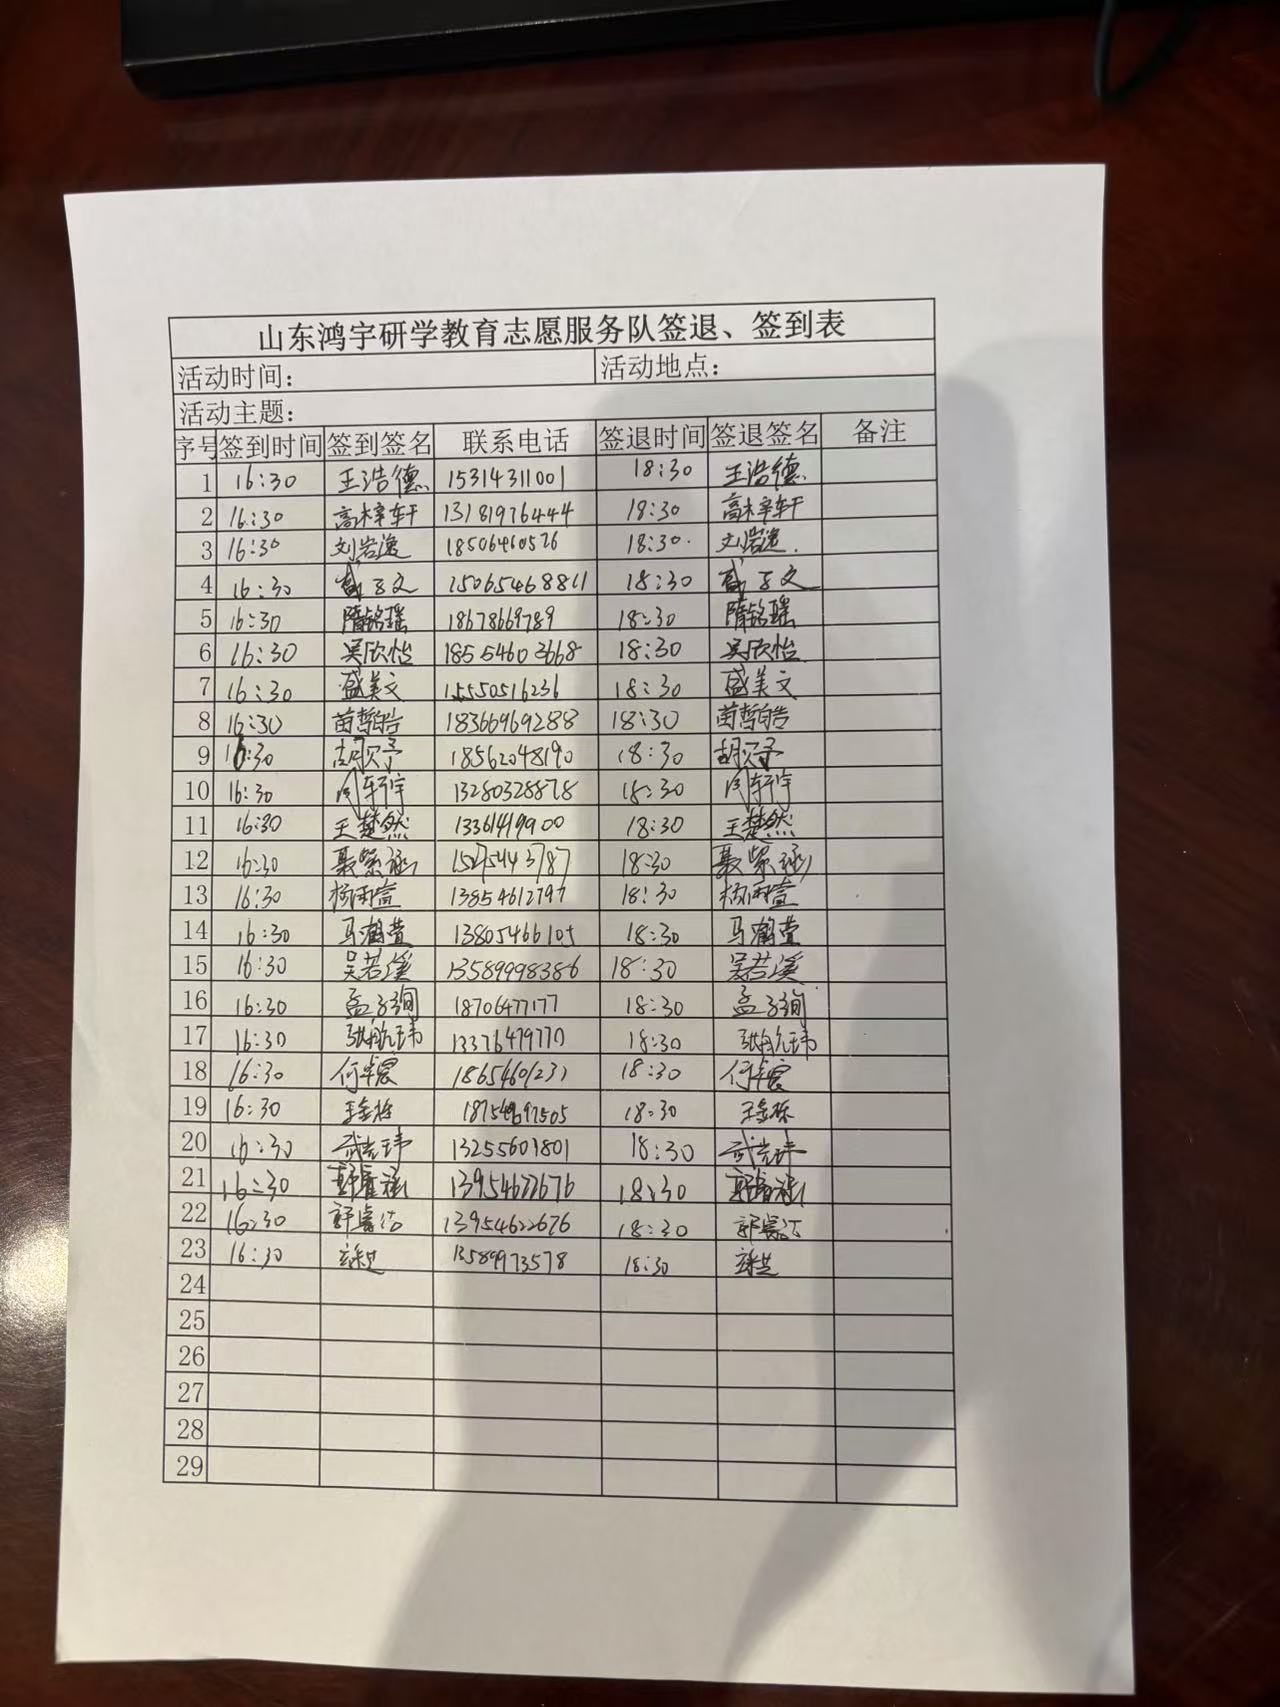 山东鸿宇研学教育志愿服务队签退、签到表
活动时间： 活动地点：
活动主题：
序号 签到时间 签到签名 联系电话 签退时间 签退签名 备注
1 16:30 王浩德 15314311001 18:30 王浩德
2 16:30 高梓轩 13181976444 18:30 高梓轩
3 16:30 刘岩逸 18506460526 18:30 刘岩逸
4 16:30 15065468811 18:30
5 16:30 隋铭瑶 18678669789 18:30 隋铭瑶
6 16:30 吴欣怡 18554603668 18:30 吴欣怡
7 16:30 盛美文 15550516236 18:30 盛美文
8 16:30 苗哲皓 18366969288 18:30 苗哲皓
9 16:30 18562048190 18:30
10 16:30 周轩宇 13280328878 18:30 周轩宇
11 16:30 王楚然 13361419900 18:30 王楚然
12 16:30 聂紫涵 15275443787 18:30 聂紫涵
13 16:30 杨雨萱 13854612797 18:30 杨雨萱
14 16:30 13805466105 18:30
15 16:30 吴若溪 13589998386 18:30 吴若溪
16 16:30 孟子珣 18706477177 18:30 孟子珣
17 16:30 张航玮 13376479770 18:30 张航玮
18 16:30 18:30
19 16:30 18:30
20 16:30 武浩玮 13255601801 18:30 武浩玮
21 16:30 13954622676 18:30
22 16:30 13954622676 18:30
23 16:30 13589973578 18:30
24
25
26
27
28
29